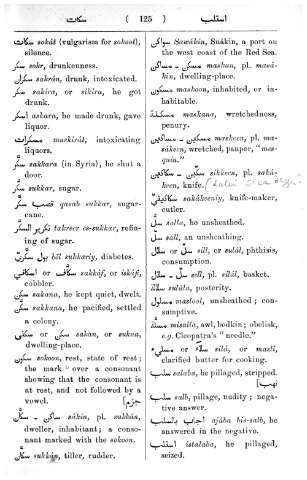 سكات ( 125 ) استلب
سكات sokát (vulgarism for sokoot),
silence.
سكر sokr, drunkenness.
سكران sakrán, drunk, intoxicated.
سكر sakira, or sikira, he got
drunk.
اسكر askara, he made drunk, gave
liquor.
مسكرات muskirát, intoxicating
liquors.
سكّر sakkara (in Syria), he shut a
door.
سكّر sukkar, sugar.
قصب سكّر qasab sukkar, sugar-
cane.
تكرير السكّر takreer es-sukkar, refin-
ing of sugar.
بول سكّري bôl sukkariy, diabetes.
سكّاف or اسكافي sakkáf, or iskáfi,
cobbler.
سكن sakana, he kept quiet, dwelt.
سكّن sakkana, he pacified, settled
a colony.
سكن or سكنى sakan, or sukna,
dwelling-place.
سكون sokoon, rest, state of rest;
the mark over a consonant
showing that the consonant is
at rest, and not followed by a
vowel. [جزم
ساكن - سكّان sákin, pl. sukkán,
dweller, inhabitant; a conso-
nant marked with the sokoon.
سكّان sukkán, tiller, rudder.
سواكن Sawákin, Suákin, a port on
the west coast of the Red Sea.
مسكن - مساكن maskan, pl. masá-
kin, dwelling-place.
مسكون maskoon, inhabited, or in-
habitable.
مسكنة maskana, wretchedness,
penury.
مسكين - مساكين maskeen, pl. ma-
sákeen, wretched, pauper, "mes-
quin."
سكّين - سكاكين sikkeen, pl. saká-
keen, knife.
سكاكيني sakákeeniy, knife-maker,
cutler.
سلّ salla, he unsheathed.
سلّ sall, an unsheathing.
سلّ or سلال sill, or sulál, phthisis,
consumption.
سلّ - سلال sell, pl. silál, basket.
سلالة sulála, posterity.
مسلول maslool, unsheathed; con-
sumptive.
مسلّة misalla, awl, bodkin; obelisk,
e.g. Cleopatra's "needle."
سلاء or مسلي silá, or masli,
clarified butter for cooking.
سلب salaba, he pillaged, stripped.
[نهب
سلب salb, pillage, nudity; nega-
tive answer.
اجاب بالسلب ajába bis-salb, he
answered in the negative.
استلب istalaba, he pillaged,
seized.